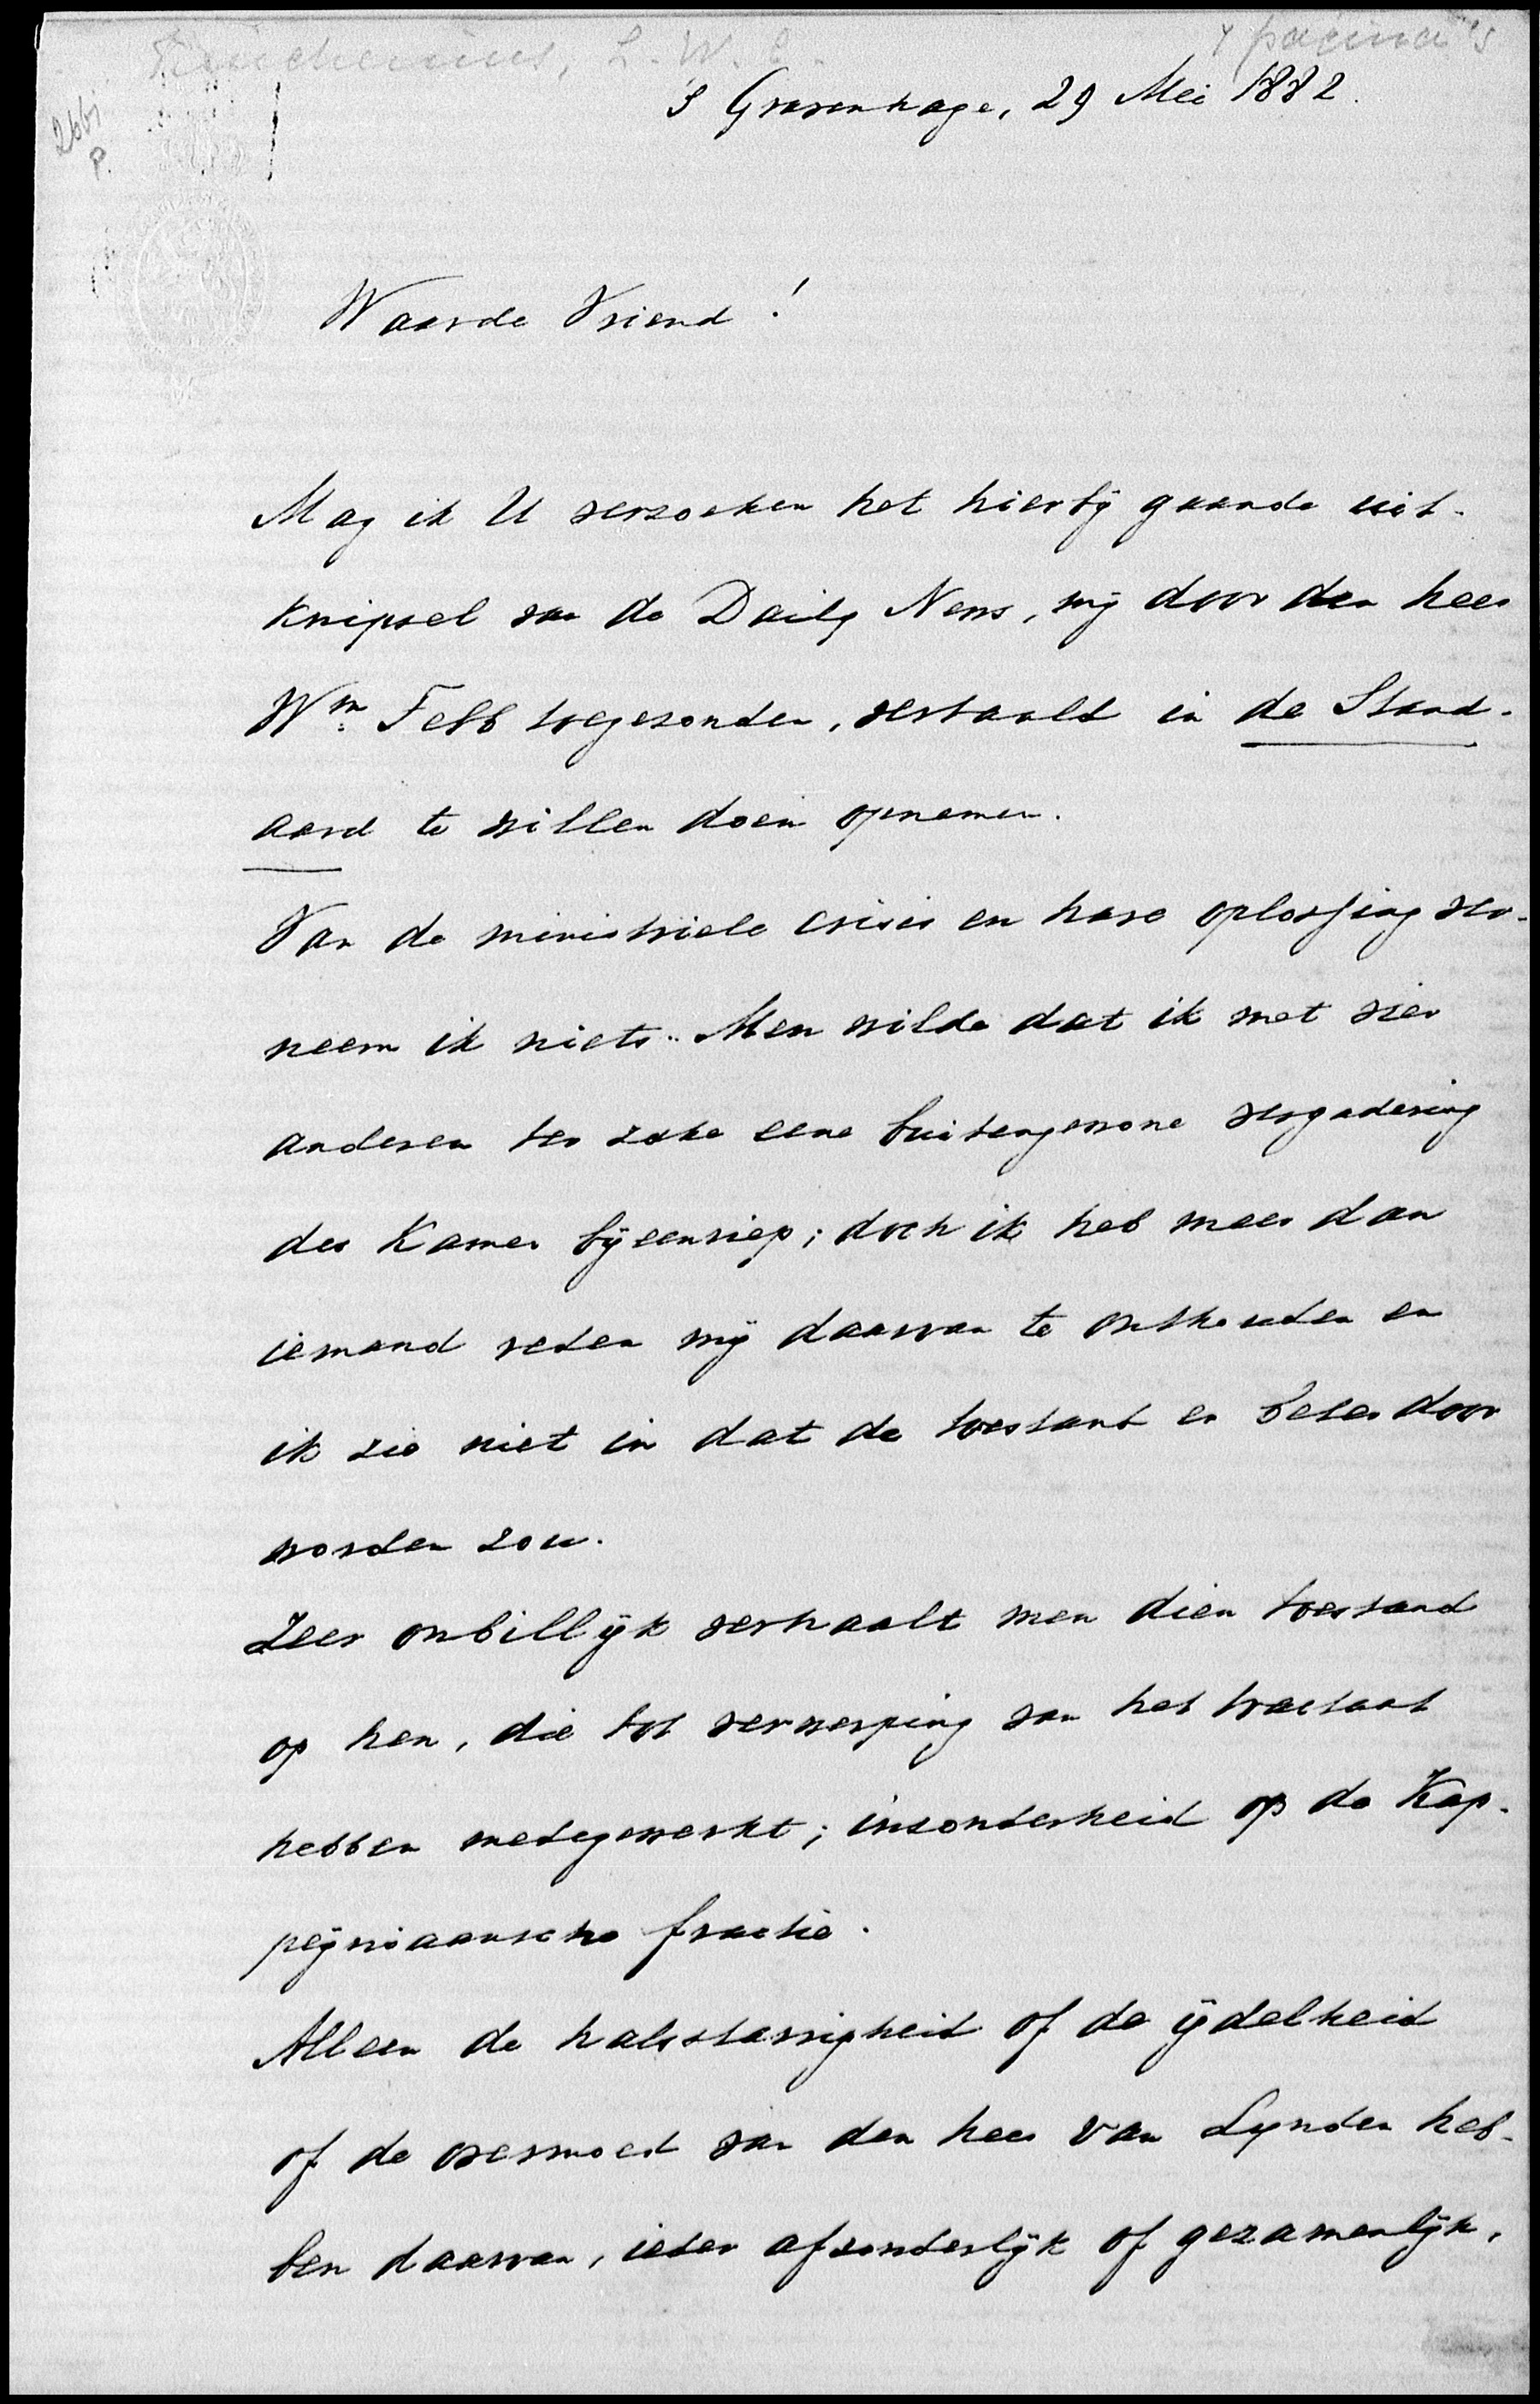 Keuchenius, L. W. C.
4 pagina's
2661
P.
S Gravenhage, 29 Mei 1882.
Waarde Vriend!
Mag ik U verzoeken het hierbij gaande uit-
knipsel van de Daily News, mij door den heer
Wm. Tebb toegezonden, vertaald in de Stand-
aard te willen doen opnemen.
Van de ministriele crisis en hare oplossing ver-
neem ik niets. Men wilde dat ik met vier
anderen ter zake eene buitengewone vergadering
der Kamer bijeenriep; doch ik heb meer dan
iemand reden mij daarvan te onthouden en
ik zie niet in dat de toestand er beter door
worden zou.
Zeer onbillijk verhaalt men dien toestand
op hen, die tot verwerping van het tractaat
hebben medegewerkt; inzonderheid op de Kap-
peijniaansche fractie.
Alleen de halsstarrigheid of de ijdelheid
of de overmoed van den heer van Lynden heb-
ben daarvan, ieder afzonderlijk of gezamenlijk,